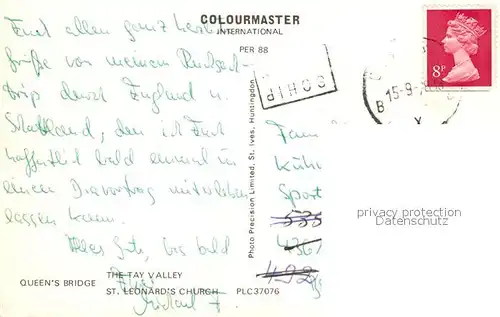 COLOURMASTER
INTERNATIONAL
PER 88
Euch allen ganz herzl.
Grüße von meinem Rückfahrt-
trip durch England u.
Schottland, den ich Euch
hoffentlich bald einmal in
einem Diavortrag miterleben
lassen kann.
Alles Gute, bis bald
Euer
Michael
THE TAY VALLEY
QUEEN'S BRIDGE ST. LEONARD'S CHURCH PLC37076
Photo Precision Limited, St. Ives, Huntingdon
8P
SOHIP
15-9
B
Fam
Küh
Sport
535
436
492
privacy protection
Datenschutz